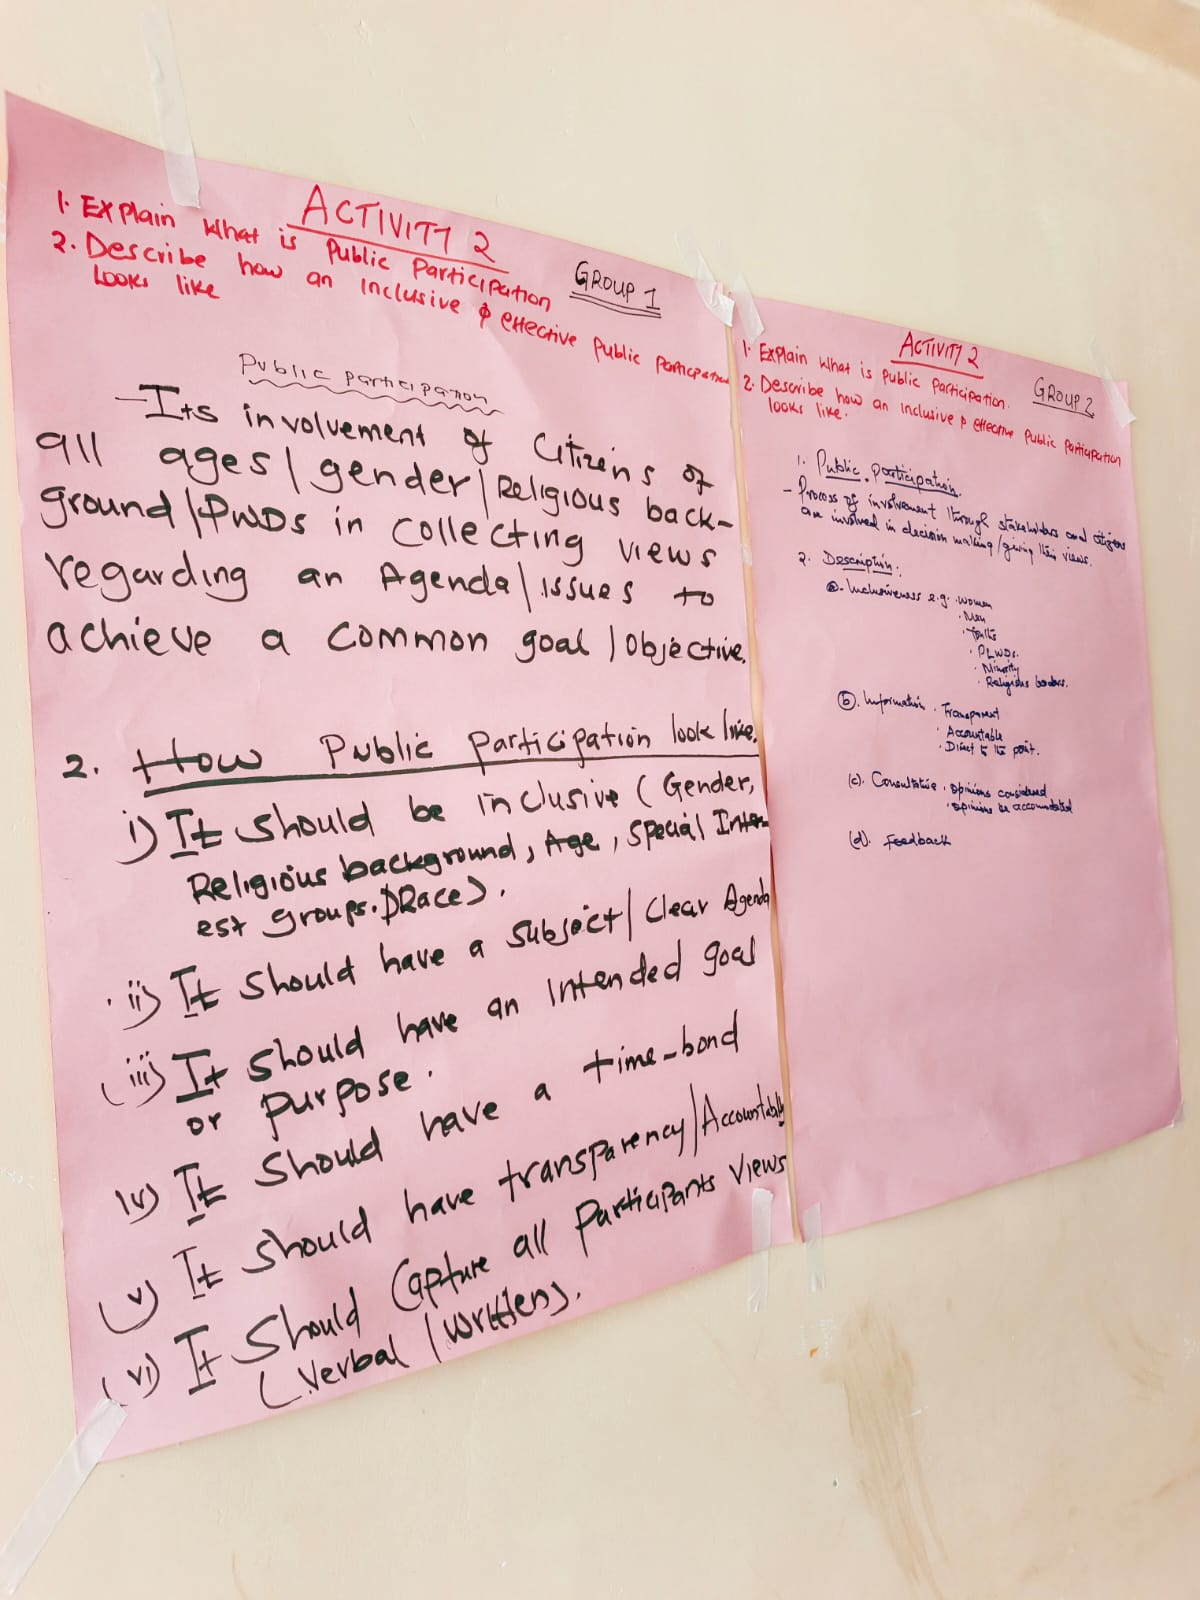 ACTIVITY 2
1. Explain what is Public Participation
2. Describe how an inclusive & effective Public Participation
looks like
GROUP 1
Public participation
- Its involvement of Citizens of
all ages/gender/Religious back-
ground/PWDs in collecting views
regarding an Agenda/issues to
achieve a common goal/Objective.
2. How Public participation look like.
i) It should be inclusive (Gender,
Religious background, Age, Special Inter-
est groups. Race).
ii) It should have a subject/Clear Agenda
(iii) It should have an intended goal
or purpose.
iv) It should have a time-bond
(v) It should have transparency/Accountably
(vi) It should Capture all Participants views
(verbal/written).
ACTIVITY 2
1. Explain what is Public Participation.
2. Describe how an inclusive & effective Public Participation
looks like.
GROUP 2
1. Public participation.
- Process of involvement through stakeholders and citizens
are involved in decision making/giving their views.
2. Description.
(a). Inclusiveness e.g. women
. Men
. PLWDs.
. Minority
. Religious leaders.
(b). Information . Transparent
. Accountable
. Direct to the point.
(c). Consultative . opinions considered
. opinions be accomodated
(d). Feedback